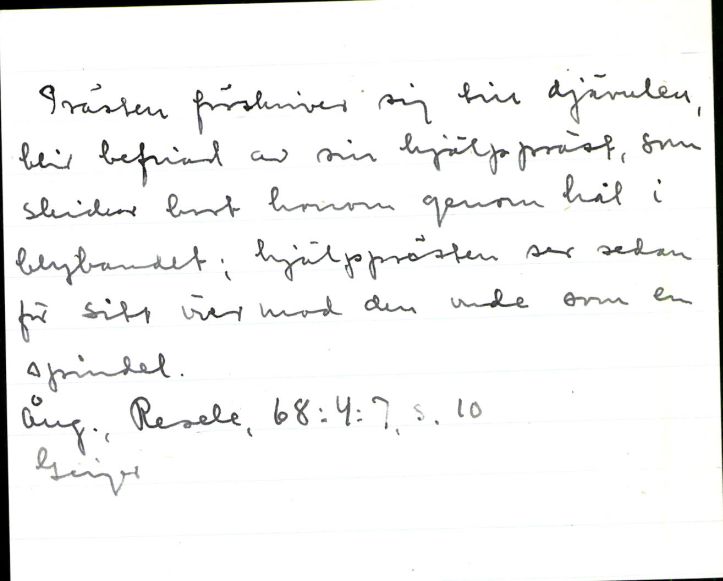 Prästen förskriver sig till djävulen,
blir befriad av sin hjälppräst, som
skickar bort honom genom hål i
blybandet; hjälpprästen ser sedan
för sitt övermod den onde som en
spindel.
Ång., Resele, 68:4:7, s. 10
Geijer